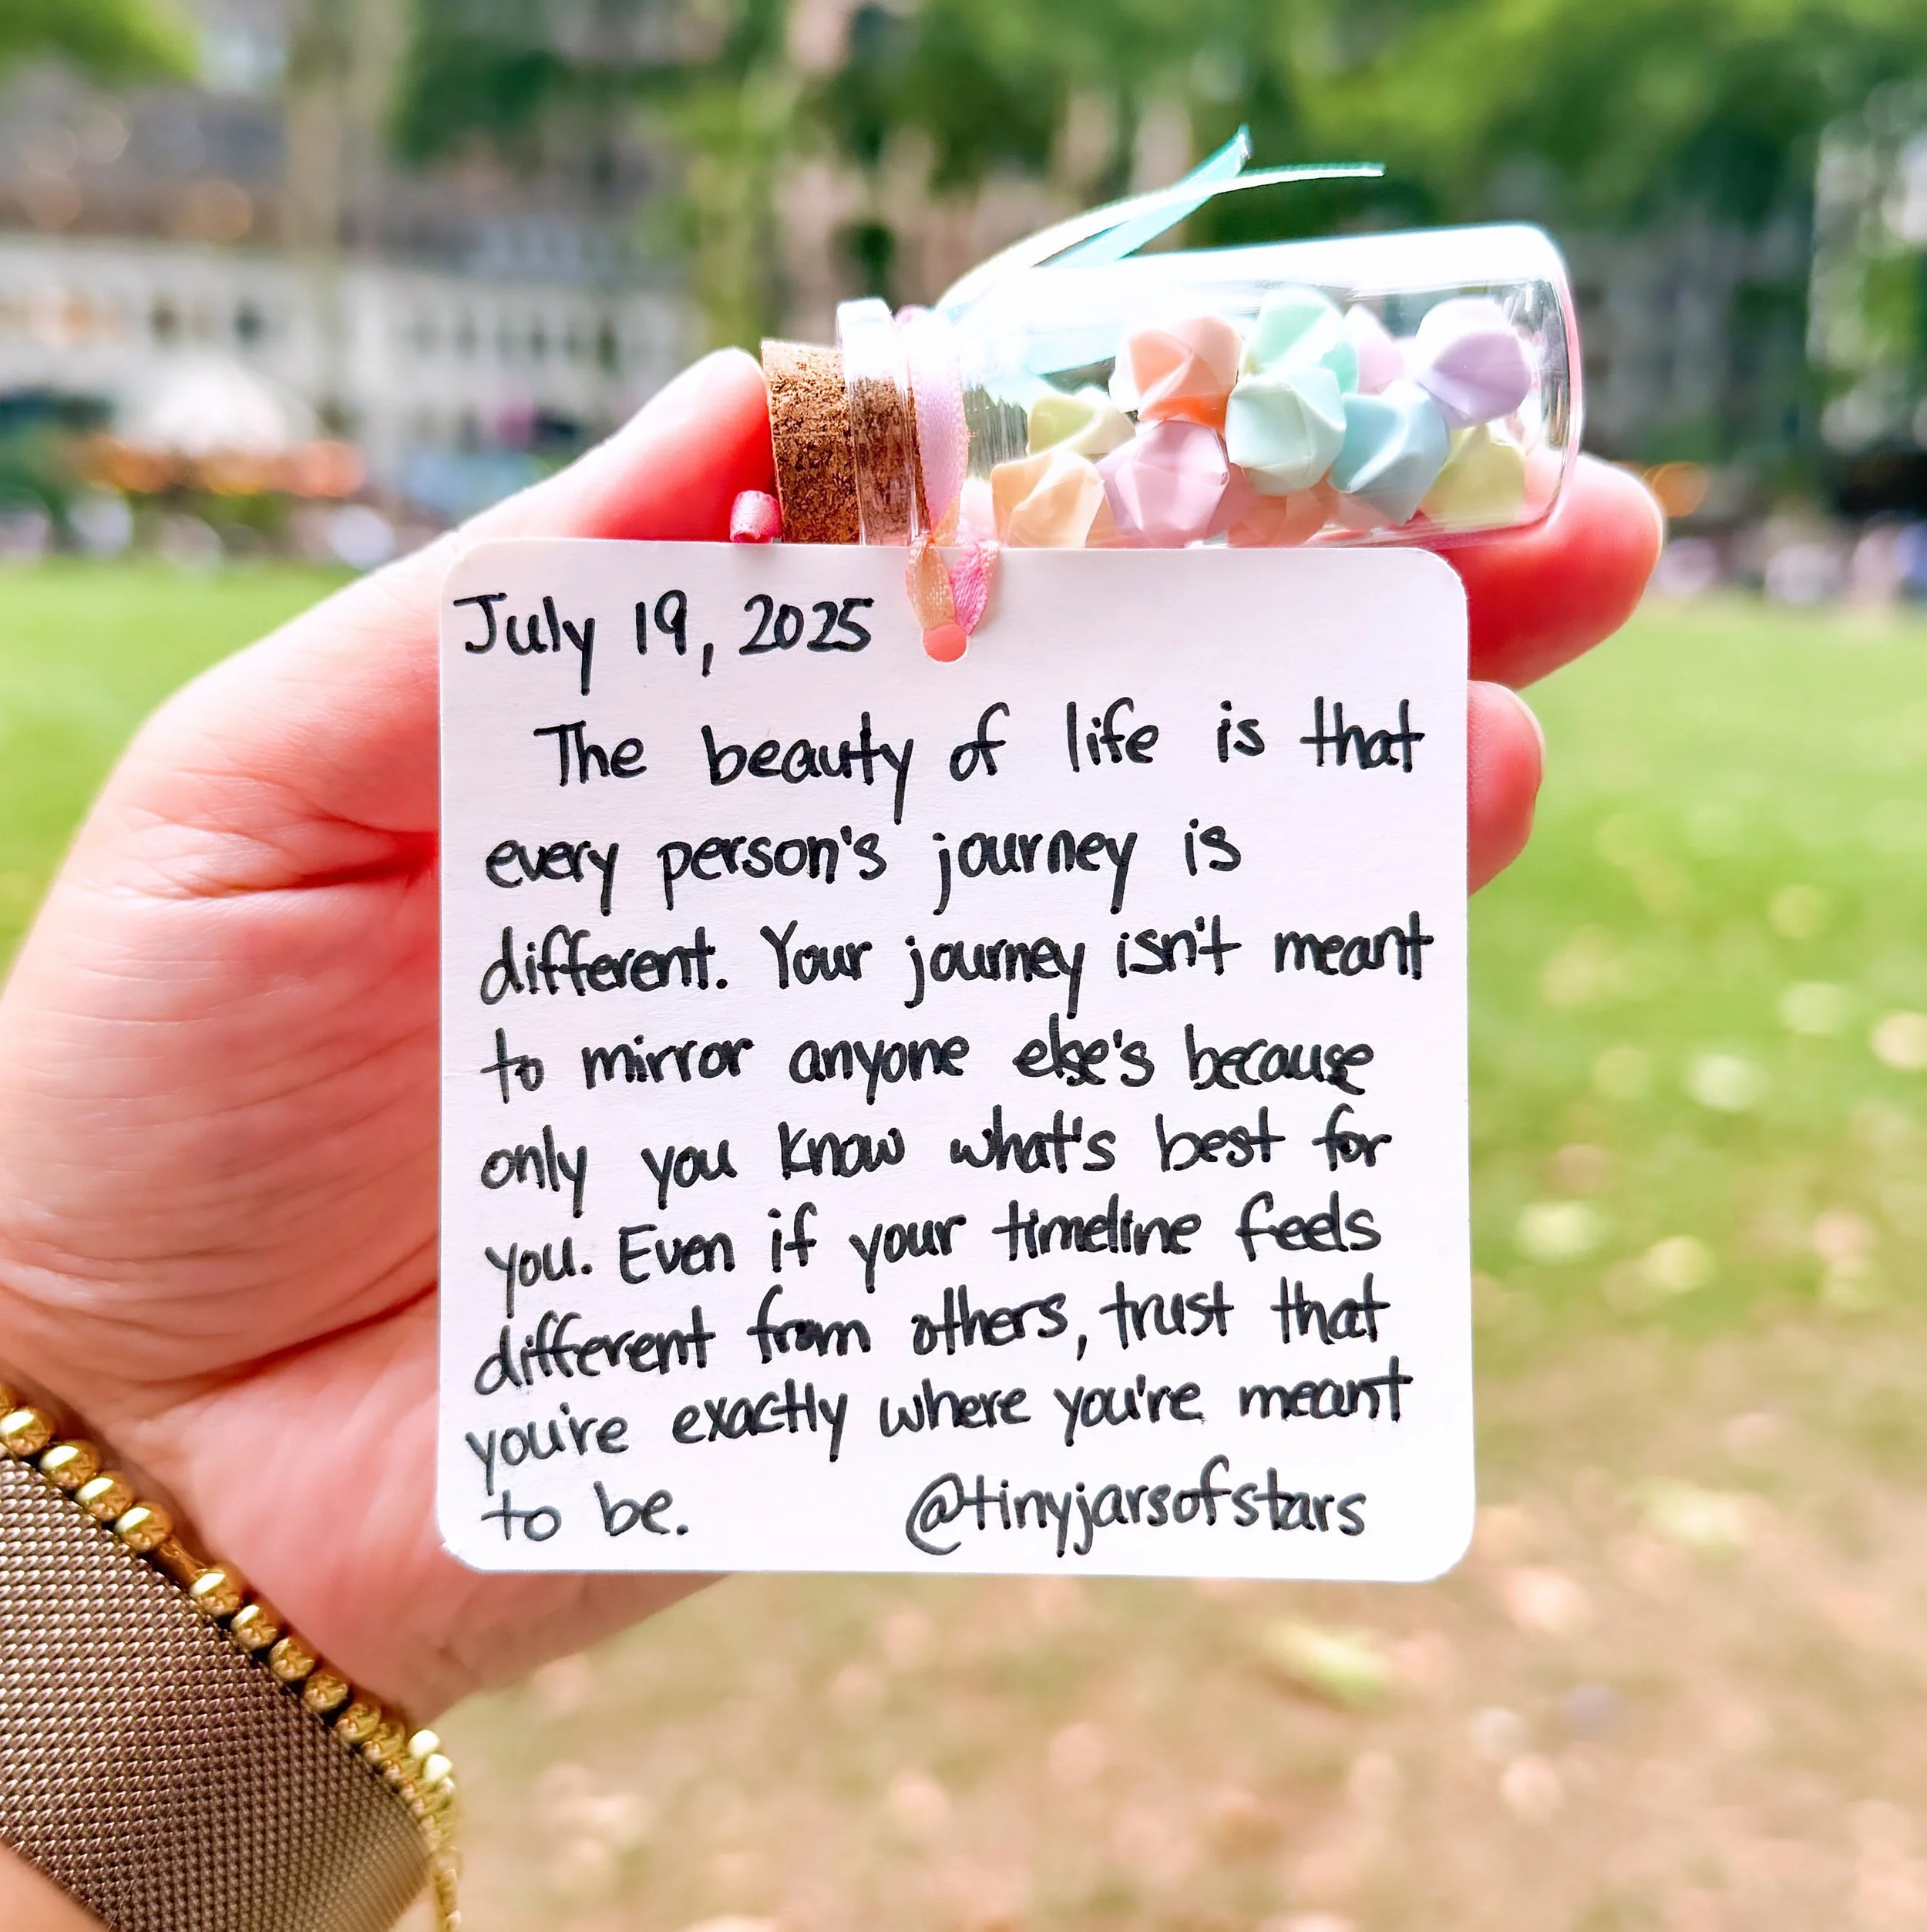 July 19, 2025
The beauty of life is that
every person's journey is
different. Your journey isn't meant
to mirror anyone else's because
only you know what's best for
you. Even if your timeline feels
different from others, trust that
you're exactly where you're meant
to be. @tinyjarsofstars